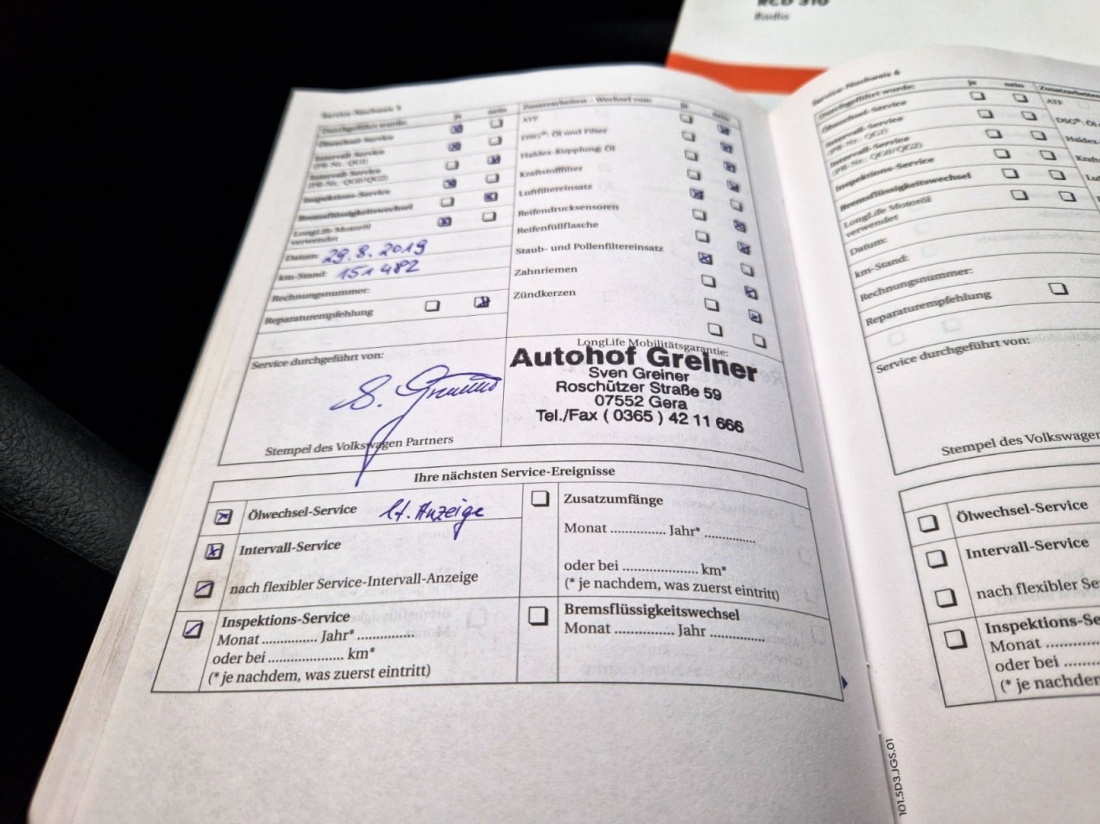 RCD 310
Radio
Service-Nachweis 5
Durchgeführt wurde: ja nein
Ölwechsel-Service
Intervall-Service
(PR-Nr. QG1)
Intervall-Service
(PR-Nr. QG0/QG2)
Inspektions-Service
Bremsflüssigkeitswechsel
LongLife Motoröl
verwendet
Datum: 29.8.2019
km-Stand: 151 482
Rechnungsnummer:
Reparaturempfehlung
Zusatzarbeiten - Wechsel von: ja nein
ATF
DSG®: Öl und Filter
Haldex-Kupplung: Öl
Kraftstofffilter
Luftfiltereinsatz
Reifendrucksensoren
Reifenfüllflasche
Staub- und Pollenfiltereinsatz
Zahnriemen
Zündkerzen
Service durchgeführt von:
Stempel des Volkswagen Partners
LongLife Mobilitätsgarantie:
Autohof Greiner
Sven Greiner
Roschützer Straße 59
07552 Gera
Tel./Fax ( 0365 ) 42 11 666
Ihre nächsten Service-Ereignisse
Ölwechsel-Service lt. Anzeige
Intervall-Service
nach flexibler Service-Intervall-Anzeige
Inspektions-Service
Monat .............. Jahr* ..............
oder bei ................... km*
(* je nachdem, was zuerst eintritt)
Zusatzumfänge
Monat .............. Jahr* .............
oder bei ................... km*
(* je nachdem, was zuerst eintritt)
Bremsflüssigkeitswechsel
Monat .............. Jahr .............
Service-Nachweis 6
Durchgeführt wurde: ja nein
Ölwechsel-Service
Intervall-Service
(PR-Nr. QG1)
Intervall-Service
(PR-Nr. QG0/QG2)
Inspektions-Service
Bremsflüssigkeitswechsel
LongLife Motoröl
verwendet
Datum:
km-Stand:
Rechnungsnummer:
Reparaturempfehlung
Zusatzarbeiten
ATF
DSG®: Öl
Haldex-
Service durchgeführt von:
Stempel des Volkswagen
Ölwechsel-Service
Intervall-Service
nach flexibler Se
Inspektions-Se
Monat ..............
oder bei ........
(* je nachdem
101.5D3.JGS.01